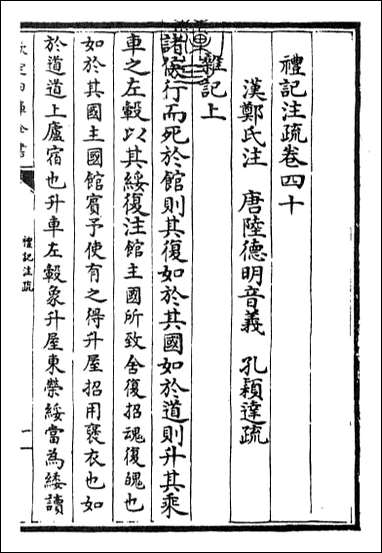 禮記注疏卷四十
漢鄭氏注 唐陸德明音義 孔穎達疏
雜記上
諸侯行而死於館則其復如於其國如於道則升其乘
車之左轂以其綏復注館主國所致舍復招魂復魄也
如於其國主國館賓予使有之得升屋招用褒衣也如
於道道上廬宿也升車左轂象升屋東榮綏當為緌讀
欽定四庫全書
禮記注疏
一